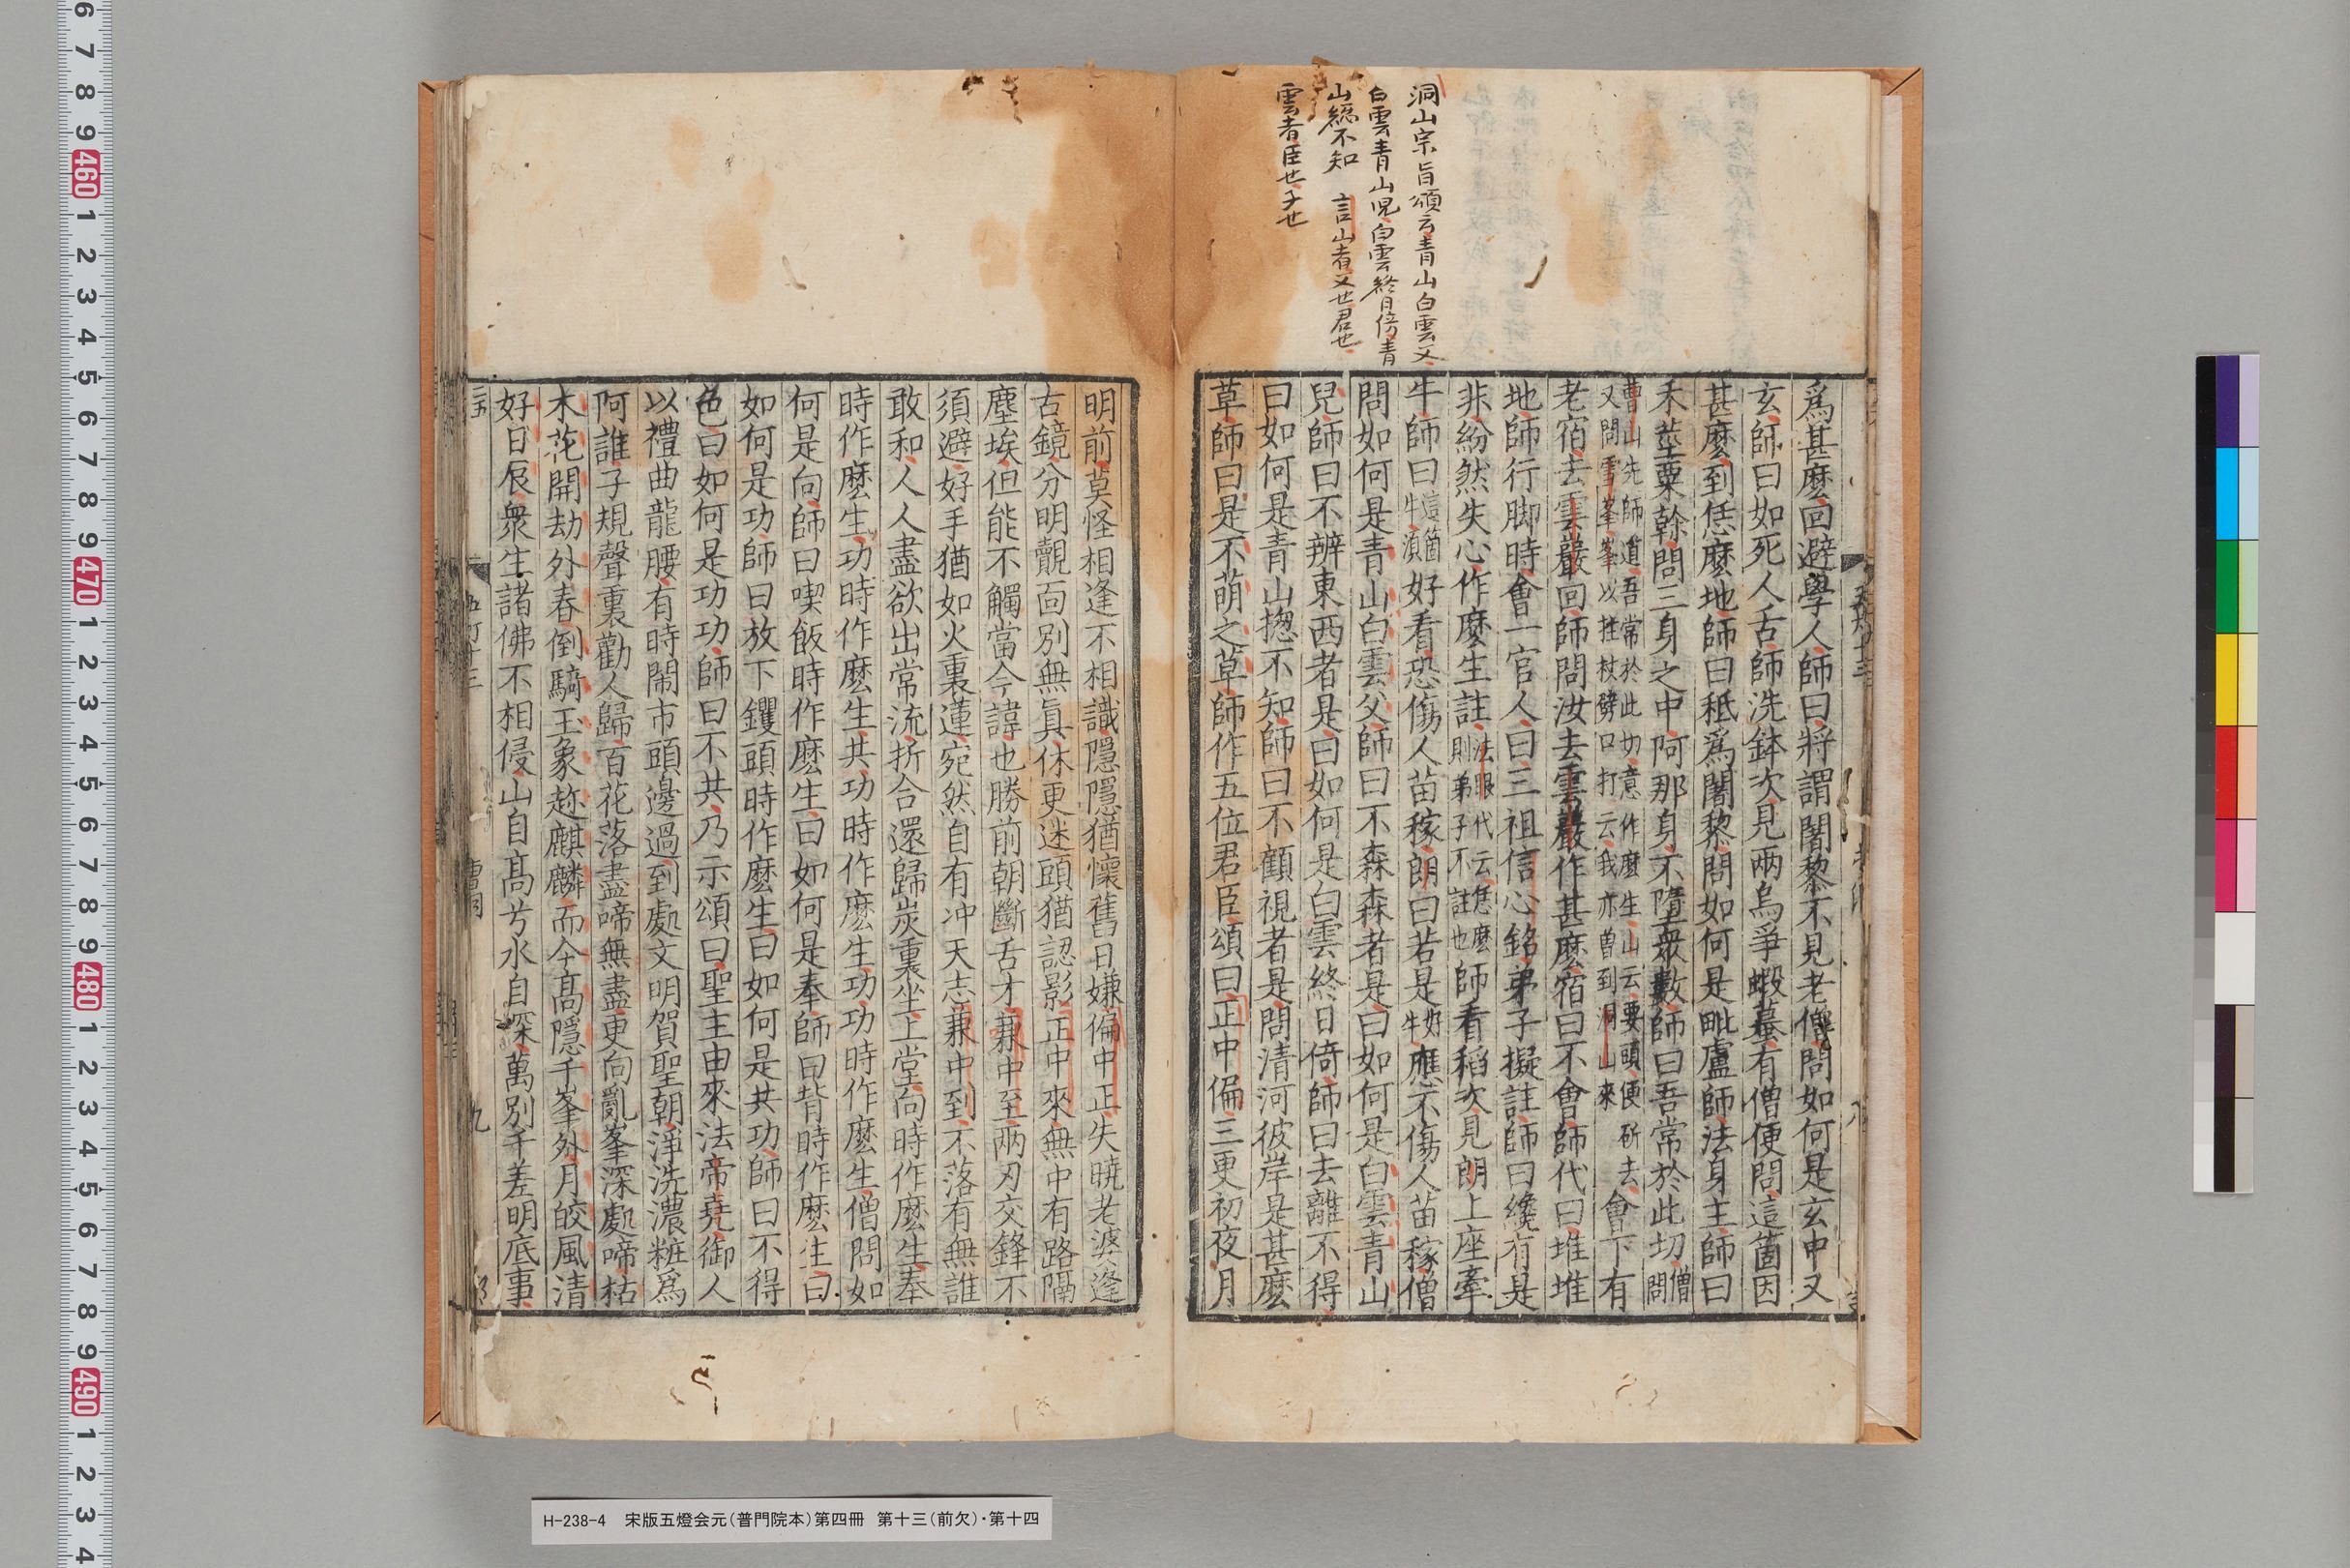 洞山宗旨頌云青山白雲父
白雲青山児白雲終日倚青
山緫不知 言山者父也君也
雲者臣也子也
爲甚麽回避學人師曰將謂闍黎不見老僧問如何是玄中又
玄師曰如死人舌師洗鉢次見兩烏爭蝦蟇有僧便問這箇因
甚麽到恁麽地師曰秖爲闍黎問如何是毗盧師法身主師曰
禾莖粟幹問三身之中阿那身不墮衆數師曰吾常於此切僧問
曹山先師道吾常於此切意作麽生山云要頭便斫去
又問雪峯峯以拄杖劈口打云我亦曾到洞山來會下有
老宿去雲巖回師問汝去雲巖作甚麽宿曰不會師代曰堆堆
地師行脚時會一官人曰三祖信心銘弟子擬註師曰纔有是
非紛然失心作麽生註法眼代云恁麽則弟子不註也師看稻次見朗上座牽
牛師曰這箇牛須好看恐傷人苗稼朗曰若是好牛應不傷人苗稼僧
問如何是青山白雲父師曰不森森者是曰如何是白雲青山
兒師曰不辨東西者是曰如何是白雲終日倚師曰去離不得
曰如何是青山揔不知師曰不顧視者是問清河彼岸是甚麽
草師曰是不萌之草師作五位君臣頌曰正中偏三更初夜月
明前莫怪相逢不相識隱隱猶懷舊日嫌偏中正失曉老婆逢
古鏡分明覿面別無眞休更迷頭猶認影正中來無中有路隔
塵埃但能不觸當今諱也勝前朝斷舌才兼中至兩刃交鋒不
須避好手猶如火裏蓮宛然自有冲天志兼中到不落有無誰
敢和人人盡欲出常流折合還歸炭裏坐上堂向時作麽生奉
時作麽生功時作麽生共功時作麽生功功時作麽生僧問如
何是向師曰喫飯時作麽生曰如何是奉師曰背時作麽生曰
如何是功師曰放下钁頭時作麽生曰如何是共功師曰不得
色曰如何是功功師曰不共乃示頌曰聖主由來法帝堯御人
以禮曲龍腰有時鬧市頭邊過到處文明賀聖朝淨洗濃粧爲
阿誰子規聲裏勸人歸百花落盡啼無盡更向亂峯深處啼枯
木花開劫外春倒騎玉象趂麒麟而今高隱千峯外月皎風清
好日辰衆生諸佛不相侵山自高兮水自深萬別千差明底事
九
H-238-4 宋版五燈会元（普門院本）第四冊 第十三（前欠）・第十四
6 7 8 9 460 1 2 3 4 5 6 7 8 9 470 1 2 3 4 5 6 7 8 9 480 1 2 3 4 5 6 7 8 9 490 1 2 3 4